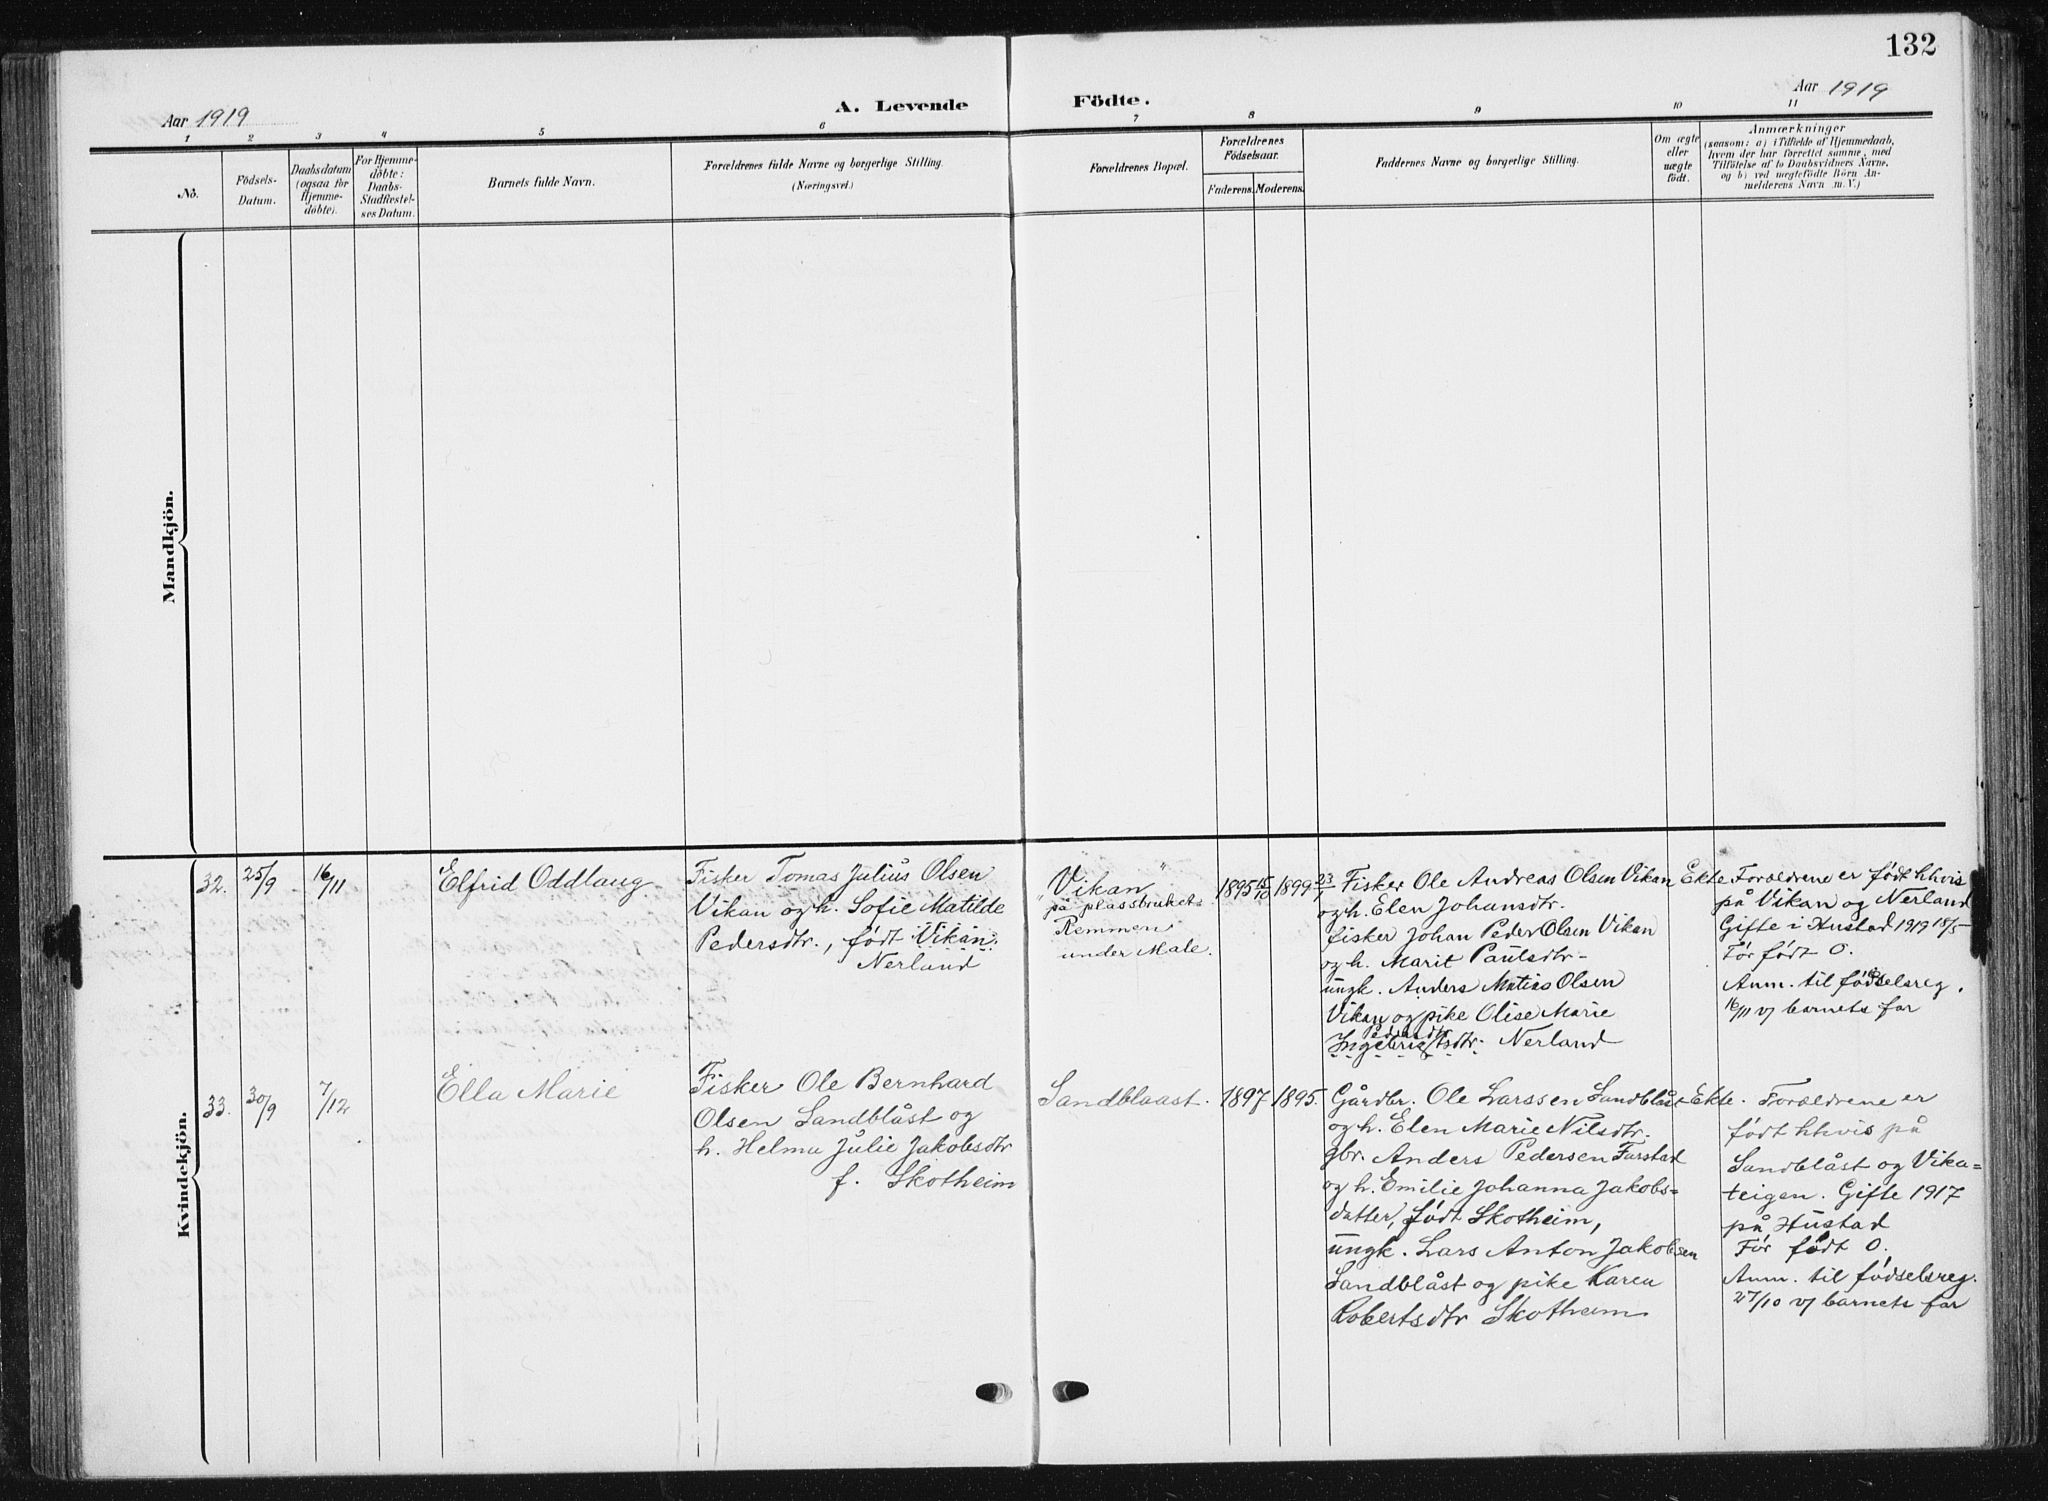 132
Aar 1919
A. Levende
Födte.
Aar 1919
1 2 3 4 5 6 7 8 9 10 11
No.
Födsels-
Datum.
Daabsdatum
(ogsaa for
Hjemme-
døbte).
For Hjemme-
døbte:
Daabs-
Stadfæstel-
ses Datum.
Barnets fulde Navn.
Forældrenes fulde Navne og borgerlige Stilling.
(Næringsvei.)
Forældrenes Bopæl.
Forældrenes
Fødselsaar.
Faderens. Moderens.
Faddernes Navne og borgerlige Stilling.
Om ægte
eller
uægte
født.
Anmærkninger
(saasom: a) i Tilfælde af Hjemmedaab,
hvem der har forrettet samme, med
Tilføielse af to Daabsvidners Navne.
og b) ved uægtefødte Børn An-
melderens Navn m. V.)
Mandkjön.
Kvindekjön.
32.
25/9
16/11
Elfrid Oddlaug
Fisker Tomas Julius Olsen
Vikan og h. Sofie Matilde
Pedersdtr., født Vikan.
Nerland
Vikan
på plassbruket
Remmen
under Male.
1895 15/10
1899 23/7
Fisker Ole Andreas Olsen Vikan
og h. Elen Johansdtr.
fisker Johan Peder Olsen Vikan
og h. Marit Paulsdtr-
ungk. Anders Matias Olsen
Vikan og pike Olise Marie
Pedersdtr.
Nerland
Ekte
Forældrene er født hhvis
på Vikan og Nerland
Gifte i Hustad 1919 18/5
Før født 0.
Anm. til fødselsreg.
16/11 v/ barnets far
33.
30/9
7/12
Ella Marie
Fisker Ole Bernhard
Olsen Sandblåst og
h. Helma Julie Jakobsdtr
f. Skotheim
Sandblaast.
1897
1895.
Gårdbr. Ole Larssen Sandblåst
og h. Elen Marie Nilsdtr.
gbr. Anders Pedersen Farstad
og h. Emilie Johanna Jakobs=
datter, født Skotheim,
ungk. Lars Anton Jakobsen
Sandblåst og pike Karen
Robertsdtr Skotheim
Ekte.
Forældrene er
født hhvis på
Sandblåst og Vika=
teigen. Gifte 1917
på Hustad
Før født 0.
Anm. til fødselsreg.
27/10 v/ barnets far